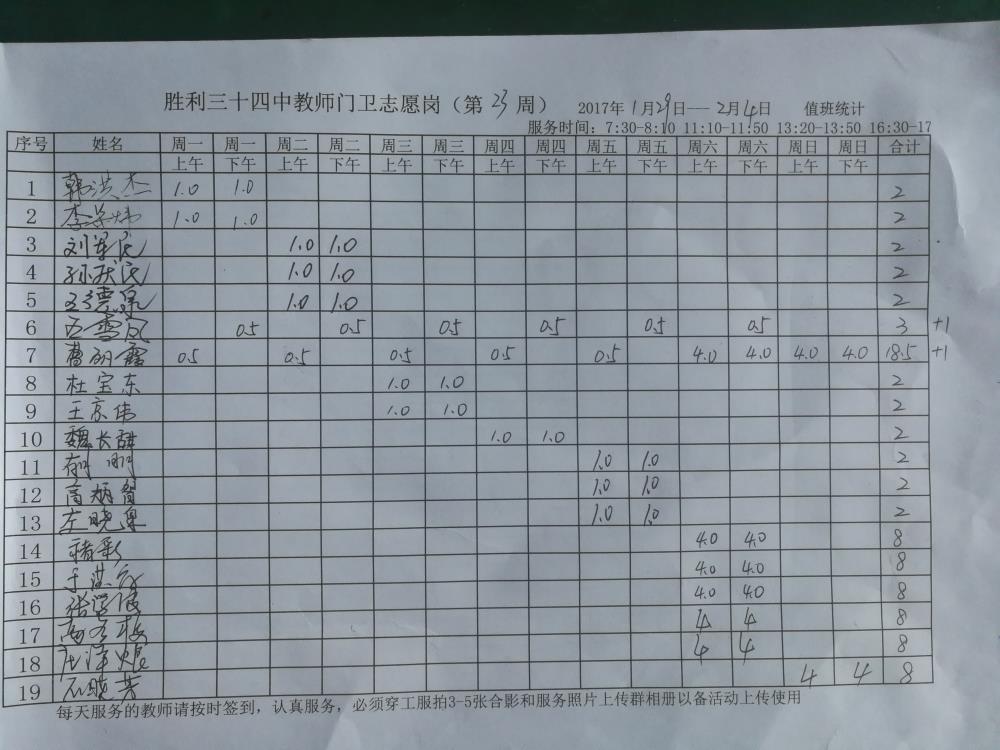 胜利三十四中教师门卫志愿岗（第 23 周） 2017年 1月29日---2月4日 值班统计
服务时间：7:30-8:10 11:10-11:50 13:20-13:50 16:30-17
序号 姓名 周一 周一 周二 周二 周三 周三 周四 周四 周五 周五 周六 周六 周日 周日 合计
上午 下午 上午 下午 上午 下午 上午 下午 上午 下午 上午 下午 上午 下午
1 韩洪杰 1.0 1.0 2
2 1.0 1.0 2
3 刘军民 1.0 1.0 2
4 孙庆民 1.0 1.0 2
5 1.0 1.0 2
6 王雪凤 0.5 0.5 0.5 0.5 0.5 0.5 3 +1
7 0.5 0.5 0.5 0.5 0.5 4.0 4.0 4.0 4.0 18.5 +1
8 杜宝东 1.0 1.0 2
9 王京伟 1.0 1.0 2
10 1.0 1.0 2
11 1.0 1.0 2
12 1.0 1.0 2
13 1.0 1.0 2
14 4.0 4.0 8
15 4.0 4.0 8
16 4.0 4.0 8
17 4 4 8
18 4 4 8
19 石晓芳 4 4 8
每天服务的教师请按时签到，认真服务，必须穿工服拍3-5张合影和服务照片上传群相册以备活动上传使用